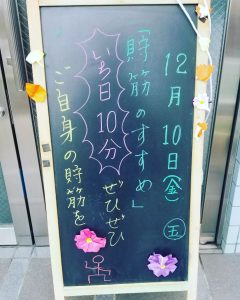 12月10日(金) 五
「貯筋のすすめ」
いち日10分
ぜひぜひ
ご自身の貯筋を